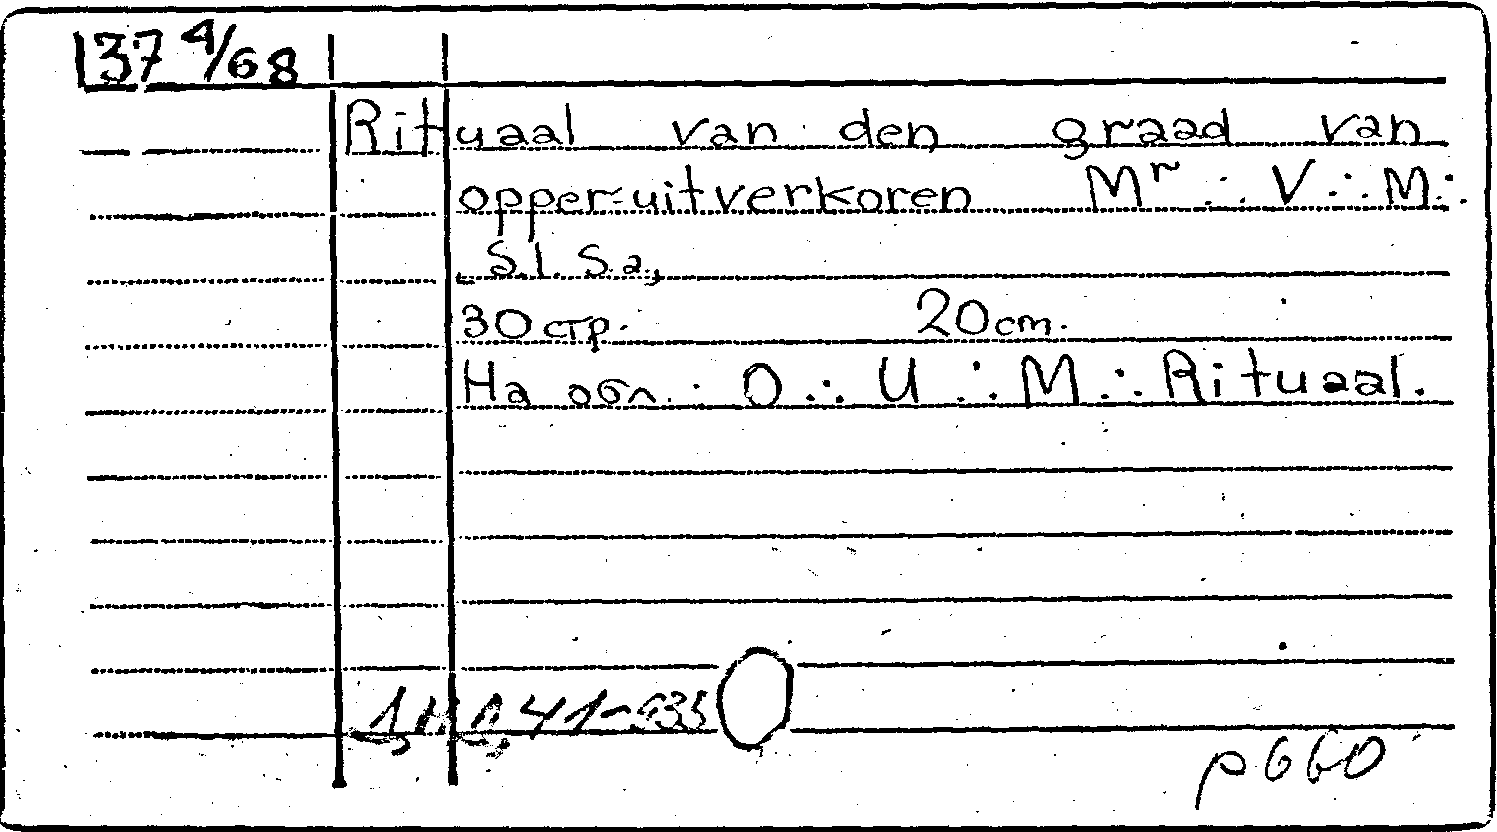 137 4/68
Rituaal van den graad van
opper-uitverkoren Mr ∴ V ∴ M ∴
S. l. S. a.,
30 стр. 20 cm.
На обл.: O ∴ U ∴ M ∴ Rituaal.
р 660